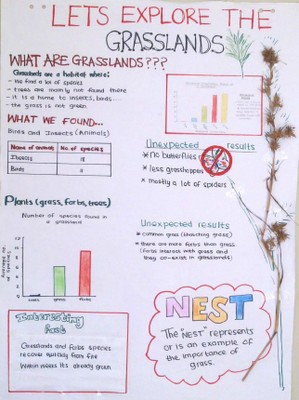 LETS EXPLORE THE
GRASSLANDS
WHAT ARE GRASSLANDS???
Grasslands are a habitat where:
- We find a lot of species
- Trees are mainly not found there
- it is a home to insects, birds...
- the grass is not green
WHAT WE FOUND...
Birds and Insects (Animals)
Name of animals No. of species
Insects
Birds
Unexpected results
* no butterflies
* less grasshoppers
* mostly a lot of spiders
Plants (grass, forbs, trees)
Number of species found in
a grassland
Average no.
of species
12
10
8
6
4
2
0
trees grass forbs
Unexpected results
* common grass (thatching grass)
* there are more forbs than grass
(forbs interact with grass and
they co-exist in grasslands)
Interesting
fact
Grasslands and forbs species
recover quickly from fire
Within weeks its already green
NEST
The "NEST" represents
or is an example of
the importance of
grass.